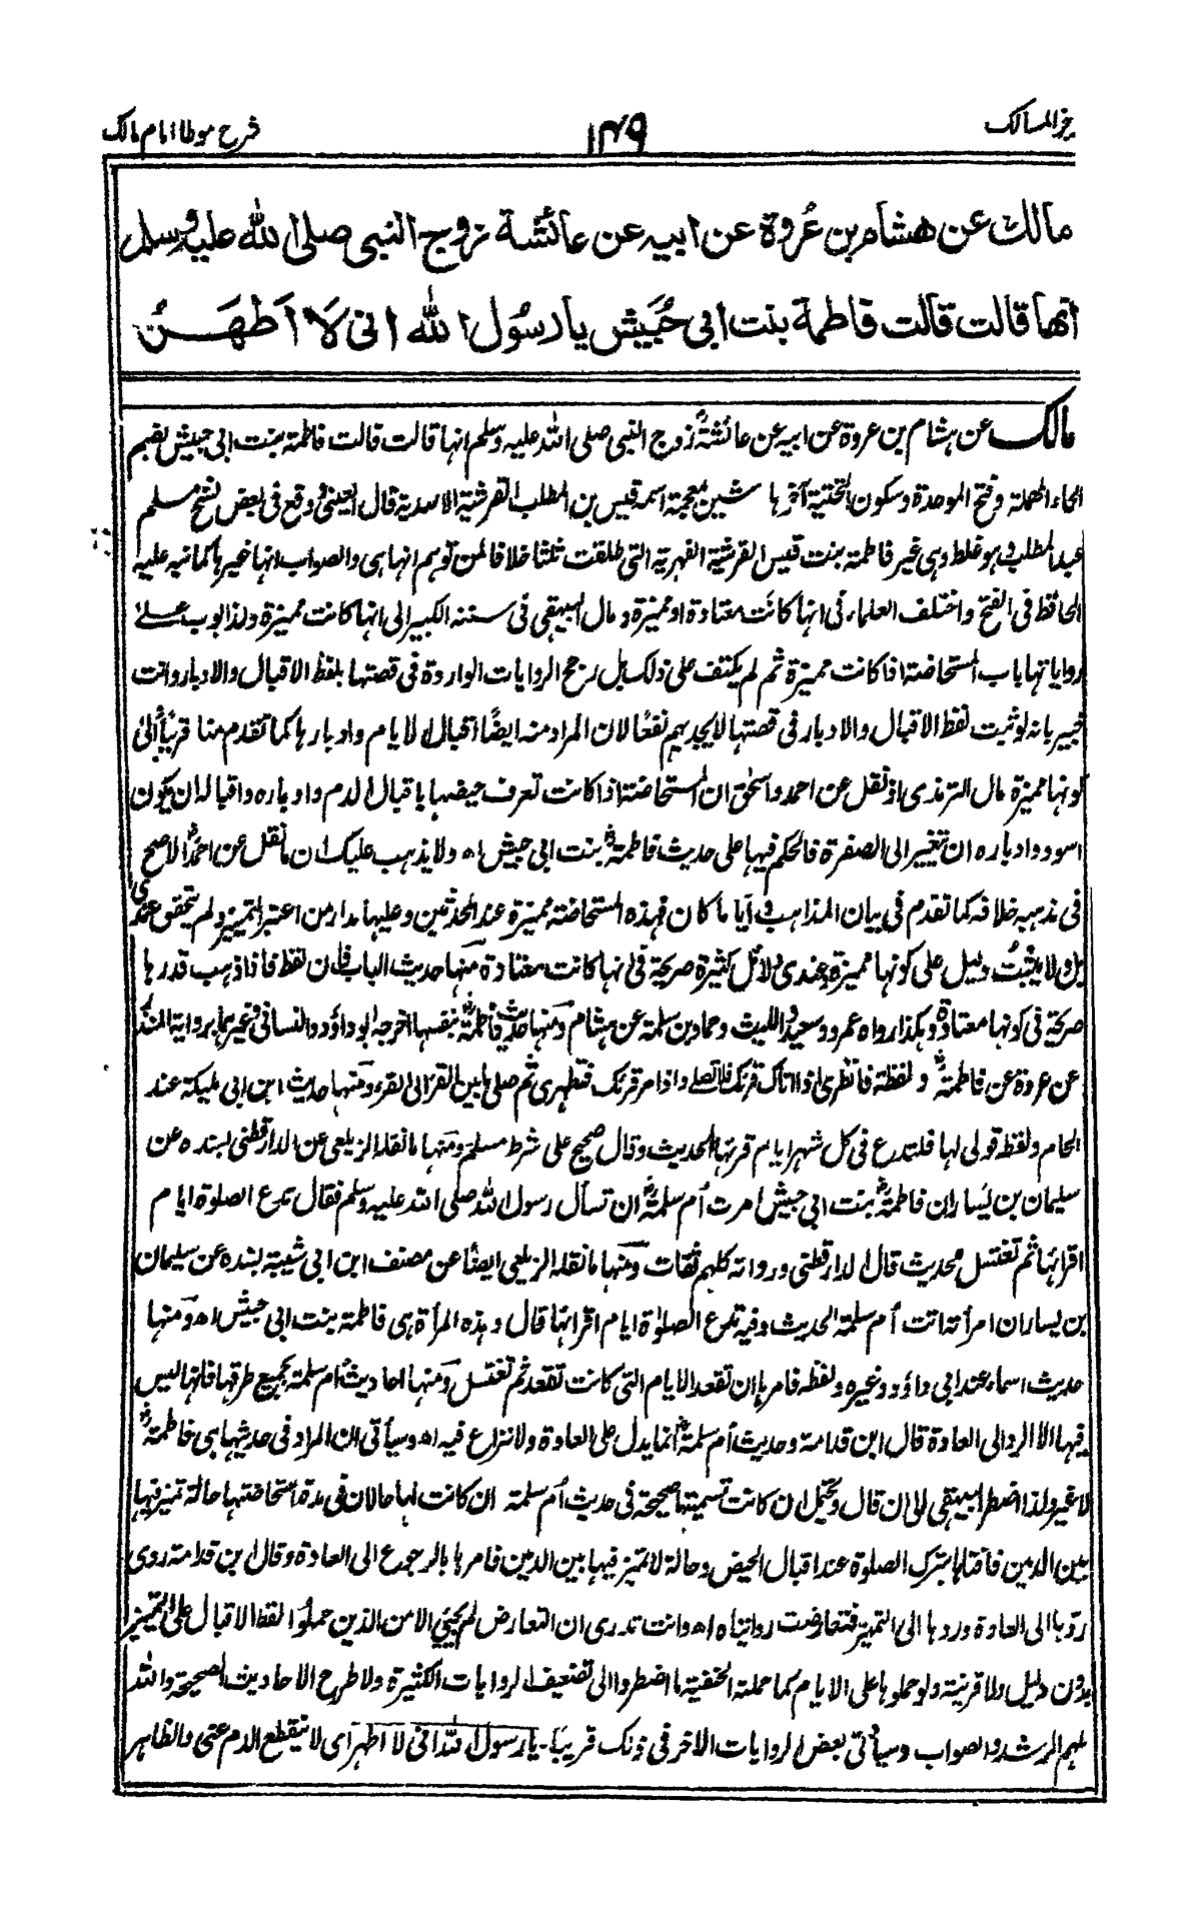 جز المسالک ۱۴۹ شرح موطا امام مالک
مالك عن هشام بن عُروة عن ابيه عن عائشة زوج النبي صلى الله عليه وسلم
انها قالت قالت فاطمة بنت ابي حُبَيش يا رسُول الله اني لَا اَطهُرُ
مالك عن ہشام بن عروة عن ابيه عن عائشة زوج النبي صلى الله عليه وسلم انها قالت قالت فاطمة بنت ابي حبيش بضم
الحاء المهملة وفتح الموحدة وسكون التحتية آخرہا شين معجمة اسمه قيس بن المطلب القرشية الاسدية قال العيني وقع في بعض نسخ مسلم
عبد المطلب وہو غلط وہي غير فاطمة بنت قيس القرشية الفہرية التي طلقت ثلثا خلافا لمن توہم انہا ہي والصواب انہا غيرہا كما نبه عليه
الحافظ في الفتح واختلف العلماء في انہا كانت معتادة او مميزة ومال البيہقي في سننه الكبير الى انہا كانت مميزة ولذا بوب علے
رواياتہا باب المستحاضة اذا كانت مميزة ثم لم يكتف على ذلك بل رجح الروايات الواردة في قصتہا بلفظ الاقبال والادبار وانت
خبير بانه لو ثبت لفظ الاقبال والادبار في قصتہا لا يجديہم نفعًا لان المراد منه ايضًا اقبال الايام وادبارہا كما تقدم منا قريبًا والى
كونہا مميزة مال الترمذي اذ نقل عن احمد واسحٰق ان المستحاضة اذا كانت تعرف حيضہا باقبال الدم وادباره واقباله ان يكون
اسود وادباره ان تغير الى الصفرة فالحكم فيہا على حديث فاطمة بنت ابي حبيش اھ ولا يذہب عليك ان ما نقل عن احمد الاصح
في مذہبه خلافه كما تقدم في بيان المذاہب وايا ما كان فہذه المستحاضة مميزة عند المحدثين وعليہا مدار من اعتبر التميز ولم يتحقق عندي
بل ولا يثبت دليل على كونہا مميزة وعندي دلائل كثيرة صريحة في انہا كانت معتادة منہا حديث الباب فان لفظ فاذا ذہب قدرہا
صريحة في كونہا معتادة وہكذا رواه عمرو وسعيد والليث وحماد بن سلمة عن ہشام ومنہا حديث فاطمة بنفسہا اخرجه ابو داؤد والنسائي وغيرہما برواية المنذر
عن عروة عن فاطمة ولفظة فانظري اذا اتاك قرؤك فلا تصلے واذا مر قرؤك فتطہري ثم صلي ما بين القرء الى القرء ومنہا حديث ابن ابي مليكة عند
الحاكم ولفظه قولي لہا فلتدع في كل شہر ايام قرئہا الحديث وقال صحيح على شرط مسلم ومنہا ما نقله الزيلعي عن الدارقطني بسنده عن
سليمان بن يسار ان فاطمة بنت ابي حبيش امرت اُم سلمة ان تسأل رسول الله صلى الله عليه وسلم فقال تدع الصلوة ايام
اقرائہا ثم تغتسل الحديث قال الدارقطني ورواته كلہم ثقات ومنہا ما نقله الزيلعي ايضًا عن مصنف ابن ابي شيبة بسنده عن سليمان
بن يسار ان امرأة اتت اُم سلمة الحديث وفيه تدع الصلوة ايام اقرائہا قال وہذه المرأة ہي فاطمة بنت ابي حبيش اھ ومنہا
حديث اسماء عند ابي داؤد وغيره ولفظه فامرہا ان تقعد الايام التي كانت تقعد ثم تغتسل ومنہا احاديث اُم سلمة بجميع طرقہا فانہا ليس
فيہا الا الرد الى العادة قال ابن قدامة وحديث اُم سلمة انما يدل على العادة ولا نزاع فيه اھ وسيأتي ان المراد في حديثہا ہي فاطمة
لا غير ولذا اضطر البيہقي الى ان قال ويحتمل ان كانت تسميتہا صحيحة في حديث اُم سلمة ان كانت لہا حالان في مدة استحاضتہا حالة تميز فيہا
بين الدمين فافتاہا بترك الصلوة عند اقبال الحيض وحالة لا تميز فيہا بين الدمين فامرہا بالرجوع الى العادة وقال ابن قدامة روي
ردہا الى العادة وردہا الى التميز فتعارضت روايتاه اھ وانت تدري ان التعارض لم يجيء الا من الذين حملوا لفظ الاقبال على التميز
بدون دليل ولا قرينة ولو حملوہا على الايام كما حملته الحنفية ما اضطروا الى تضعيف الروايات الكثيرة ولا طرح الاحاديث الصحيحة والله
ملہم الرشد والصواب وسيأتي بعض الروايات الاخر في ذلك قريبًا ۔ يا رسول الله اني لا اطهر اي لا ينقطع الدم عني والظاہر